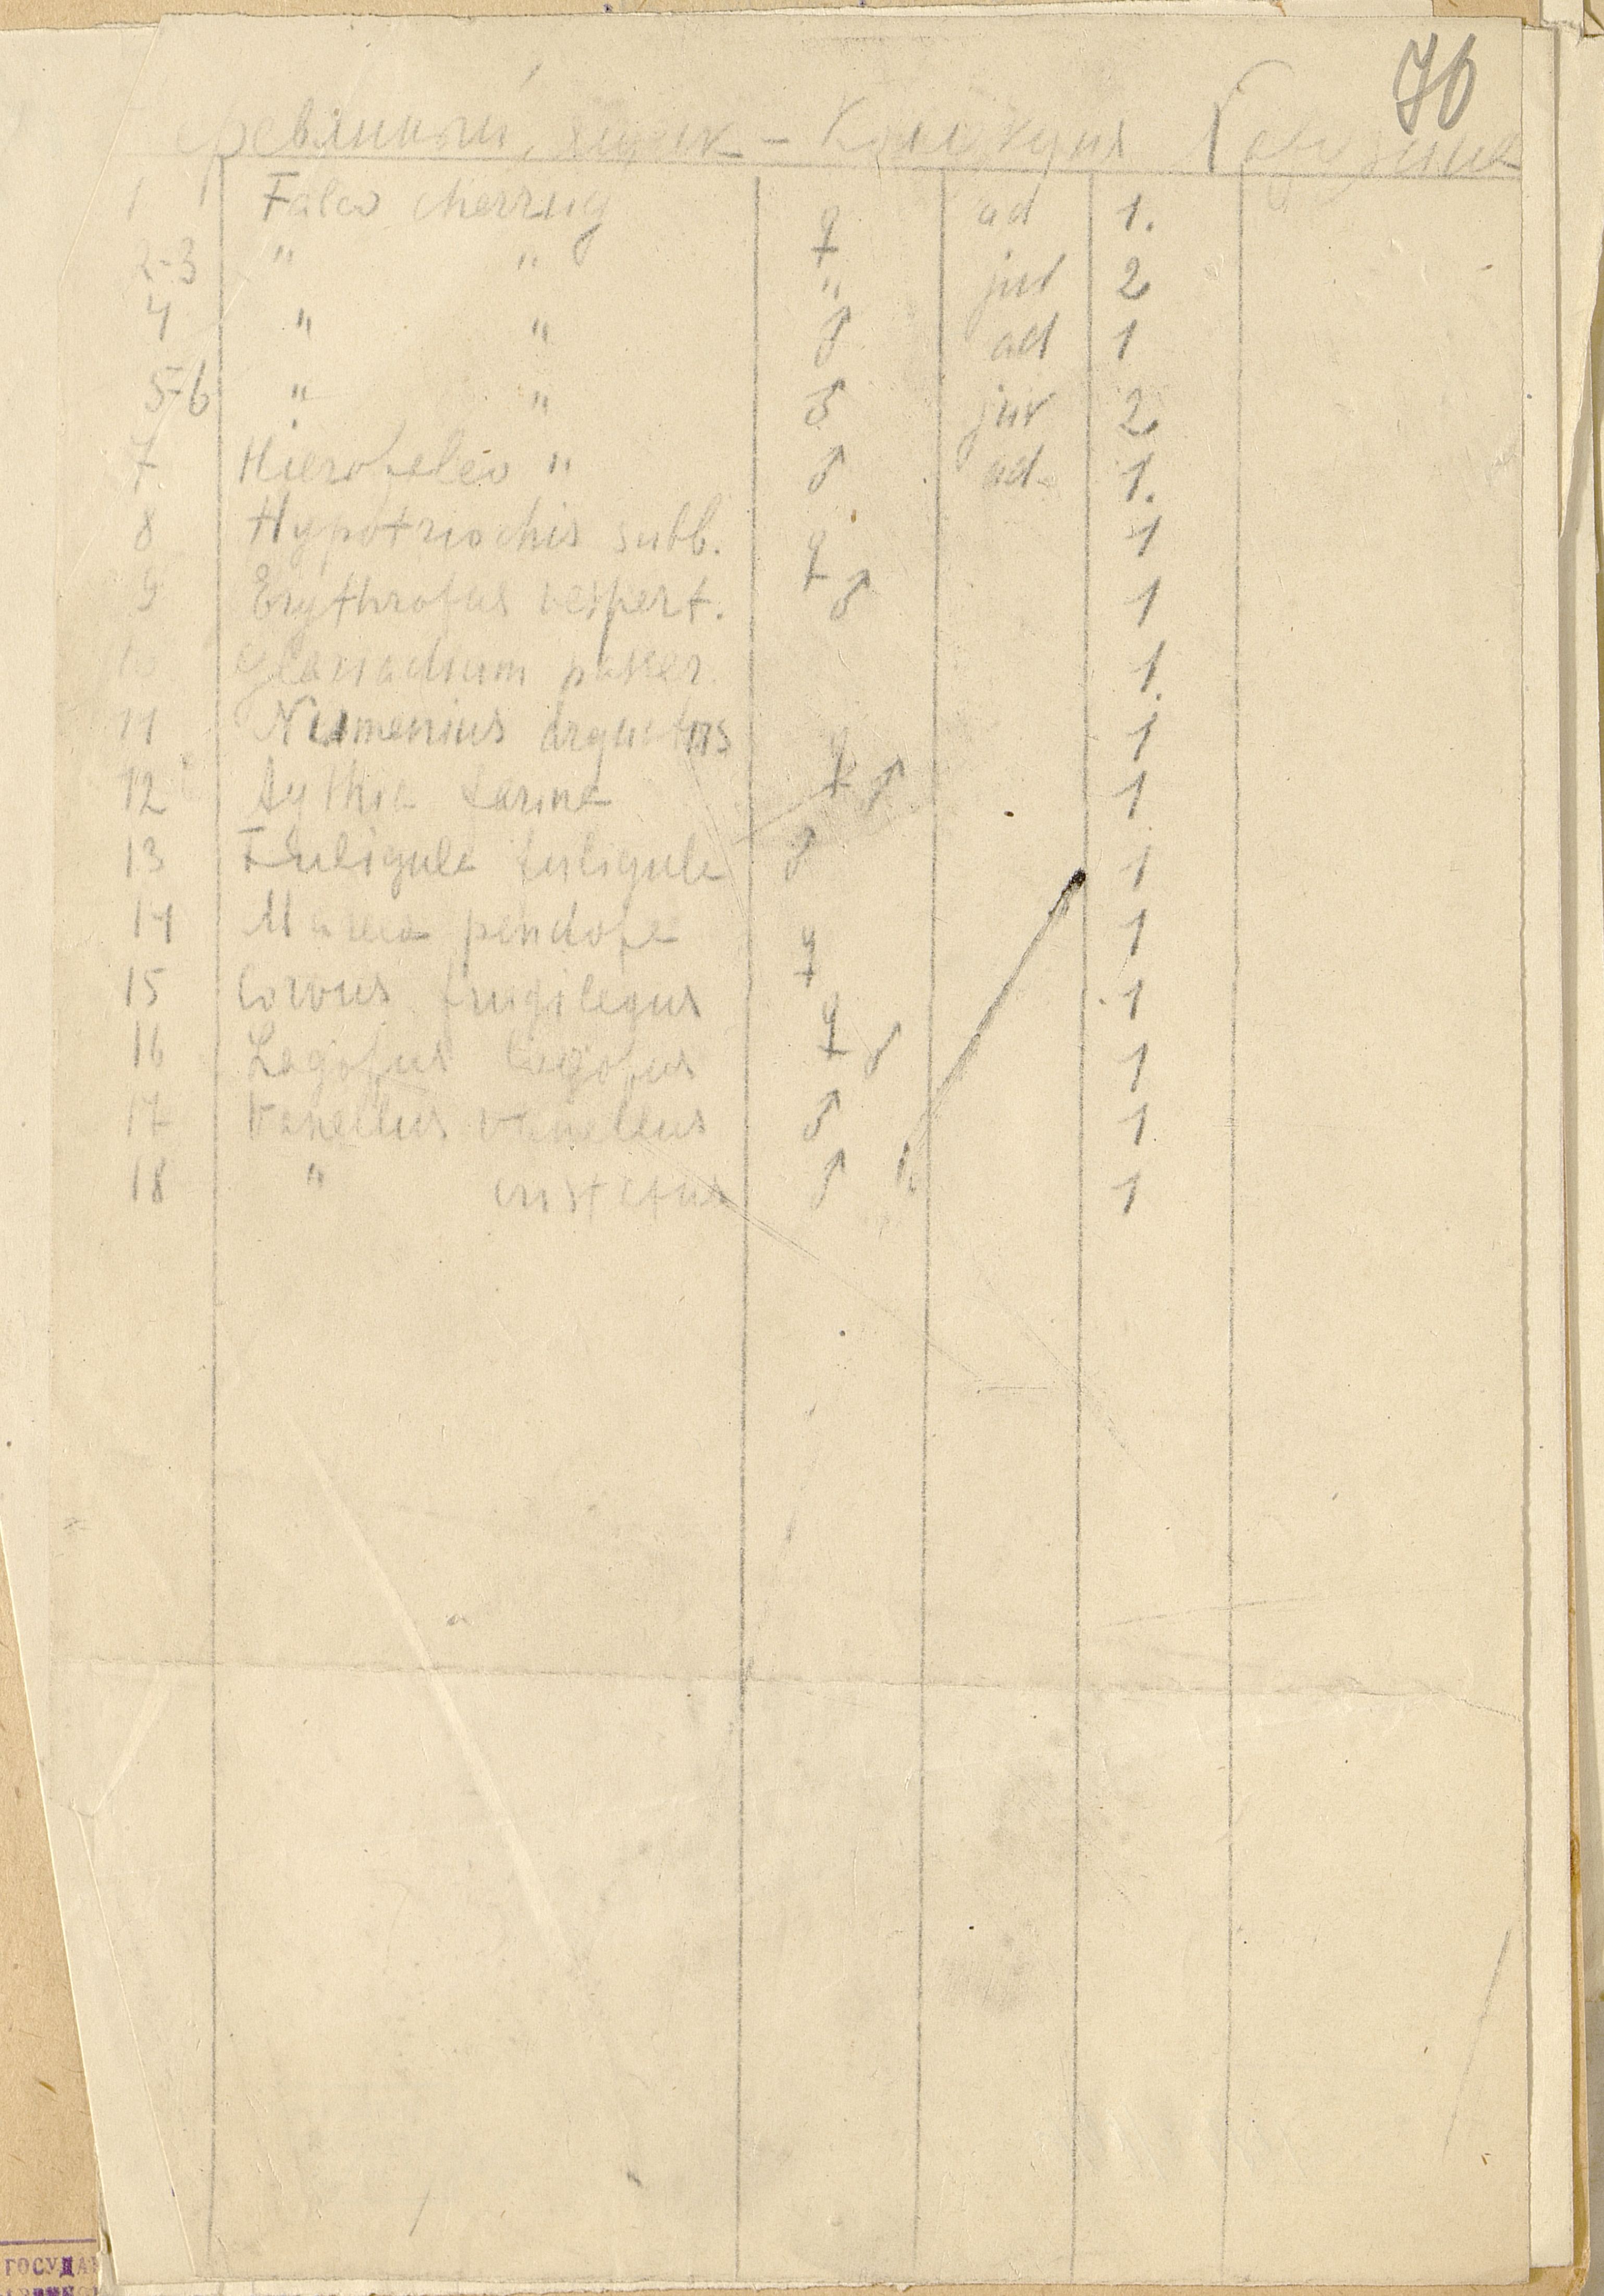 76
ящик – Коллекция
1 Falco cherrug ♀ ad 1.
2-3 " " " juv 2
4 " " ♂ ad 1
5-6 " " ♂ juv 2
7 Hierofalco " ♂ ad 1.
8 Hypotriochis subb. ♀ 1
9 Erythropus vespert. ♂ 1
10 Glaucidium passer. 1.
11 Numenius arquatus ♀ 1
12 Aythia farina ♂ 1
13 Fuligula fuligula ♂ 1
14 Mareca penelope ♀ 1
15 Corvus frugilegus ♀ 1
16 Lagopus lagopus ♂ 1
17 Vanellus vanellus ♂ 1
18 " cristatus ♂ 1
ГОСУДА